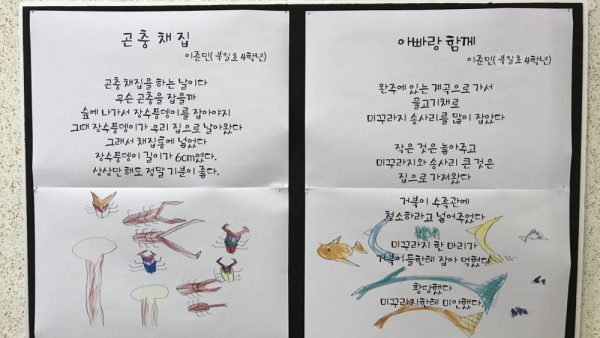 곤충채집
이준민(북일초 4학년)
곤충채집을 하는 날이다
무슨 곤충을 잡을까
숲에 나가서 장수풍뎅이를 잡아야지
그때 장수풍뎅이가 우리 집으로 날아왔다
그래서 채집통에 넣었다
장수풍뎅이 길이가 6cm였다.
상상만 해도 정말 기분이 좋다.
아빠랑 함께
이준민(북일초 4학년)
완주에 있는 계곡으로 가서
물고기채로
미꾸라지 송사리를 많이 잡았다
작은 것은 놓아주고
미꾸라지와 송사리 큰 것은
집으로 가져왔다
거북이 수족관에
청소하라고 넣어주었다
미꾸라지 한 마리가
거북이들한테 잡아 먹혔다
황당했다
미꾸라지한테 미안했다.